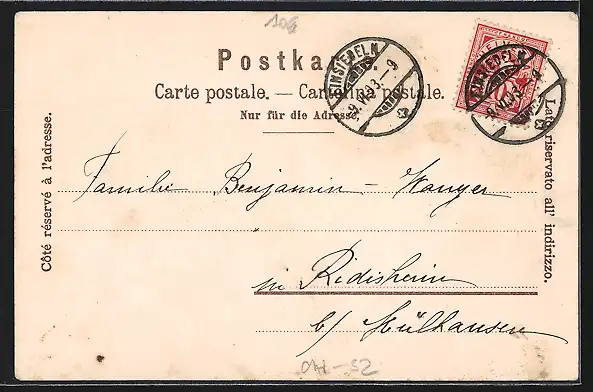 109
Postkarte.
Carte postale. — Cartolina postale.
Nur für die Adresse.
EINSIEDELN
9.VI.03.-9
EINSIEDELN
9.VI.03.-9
Côté réservé à l'adresse.
Lato riservato all' indirizzo.
Familie Benjamin - Wanger
in Ridisheim
b/ Mülhausen